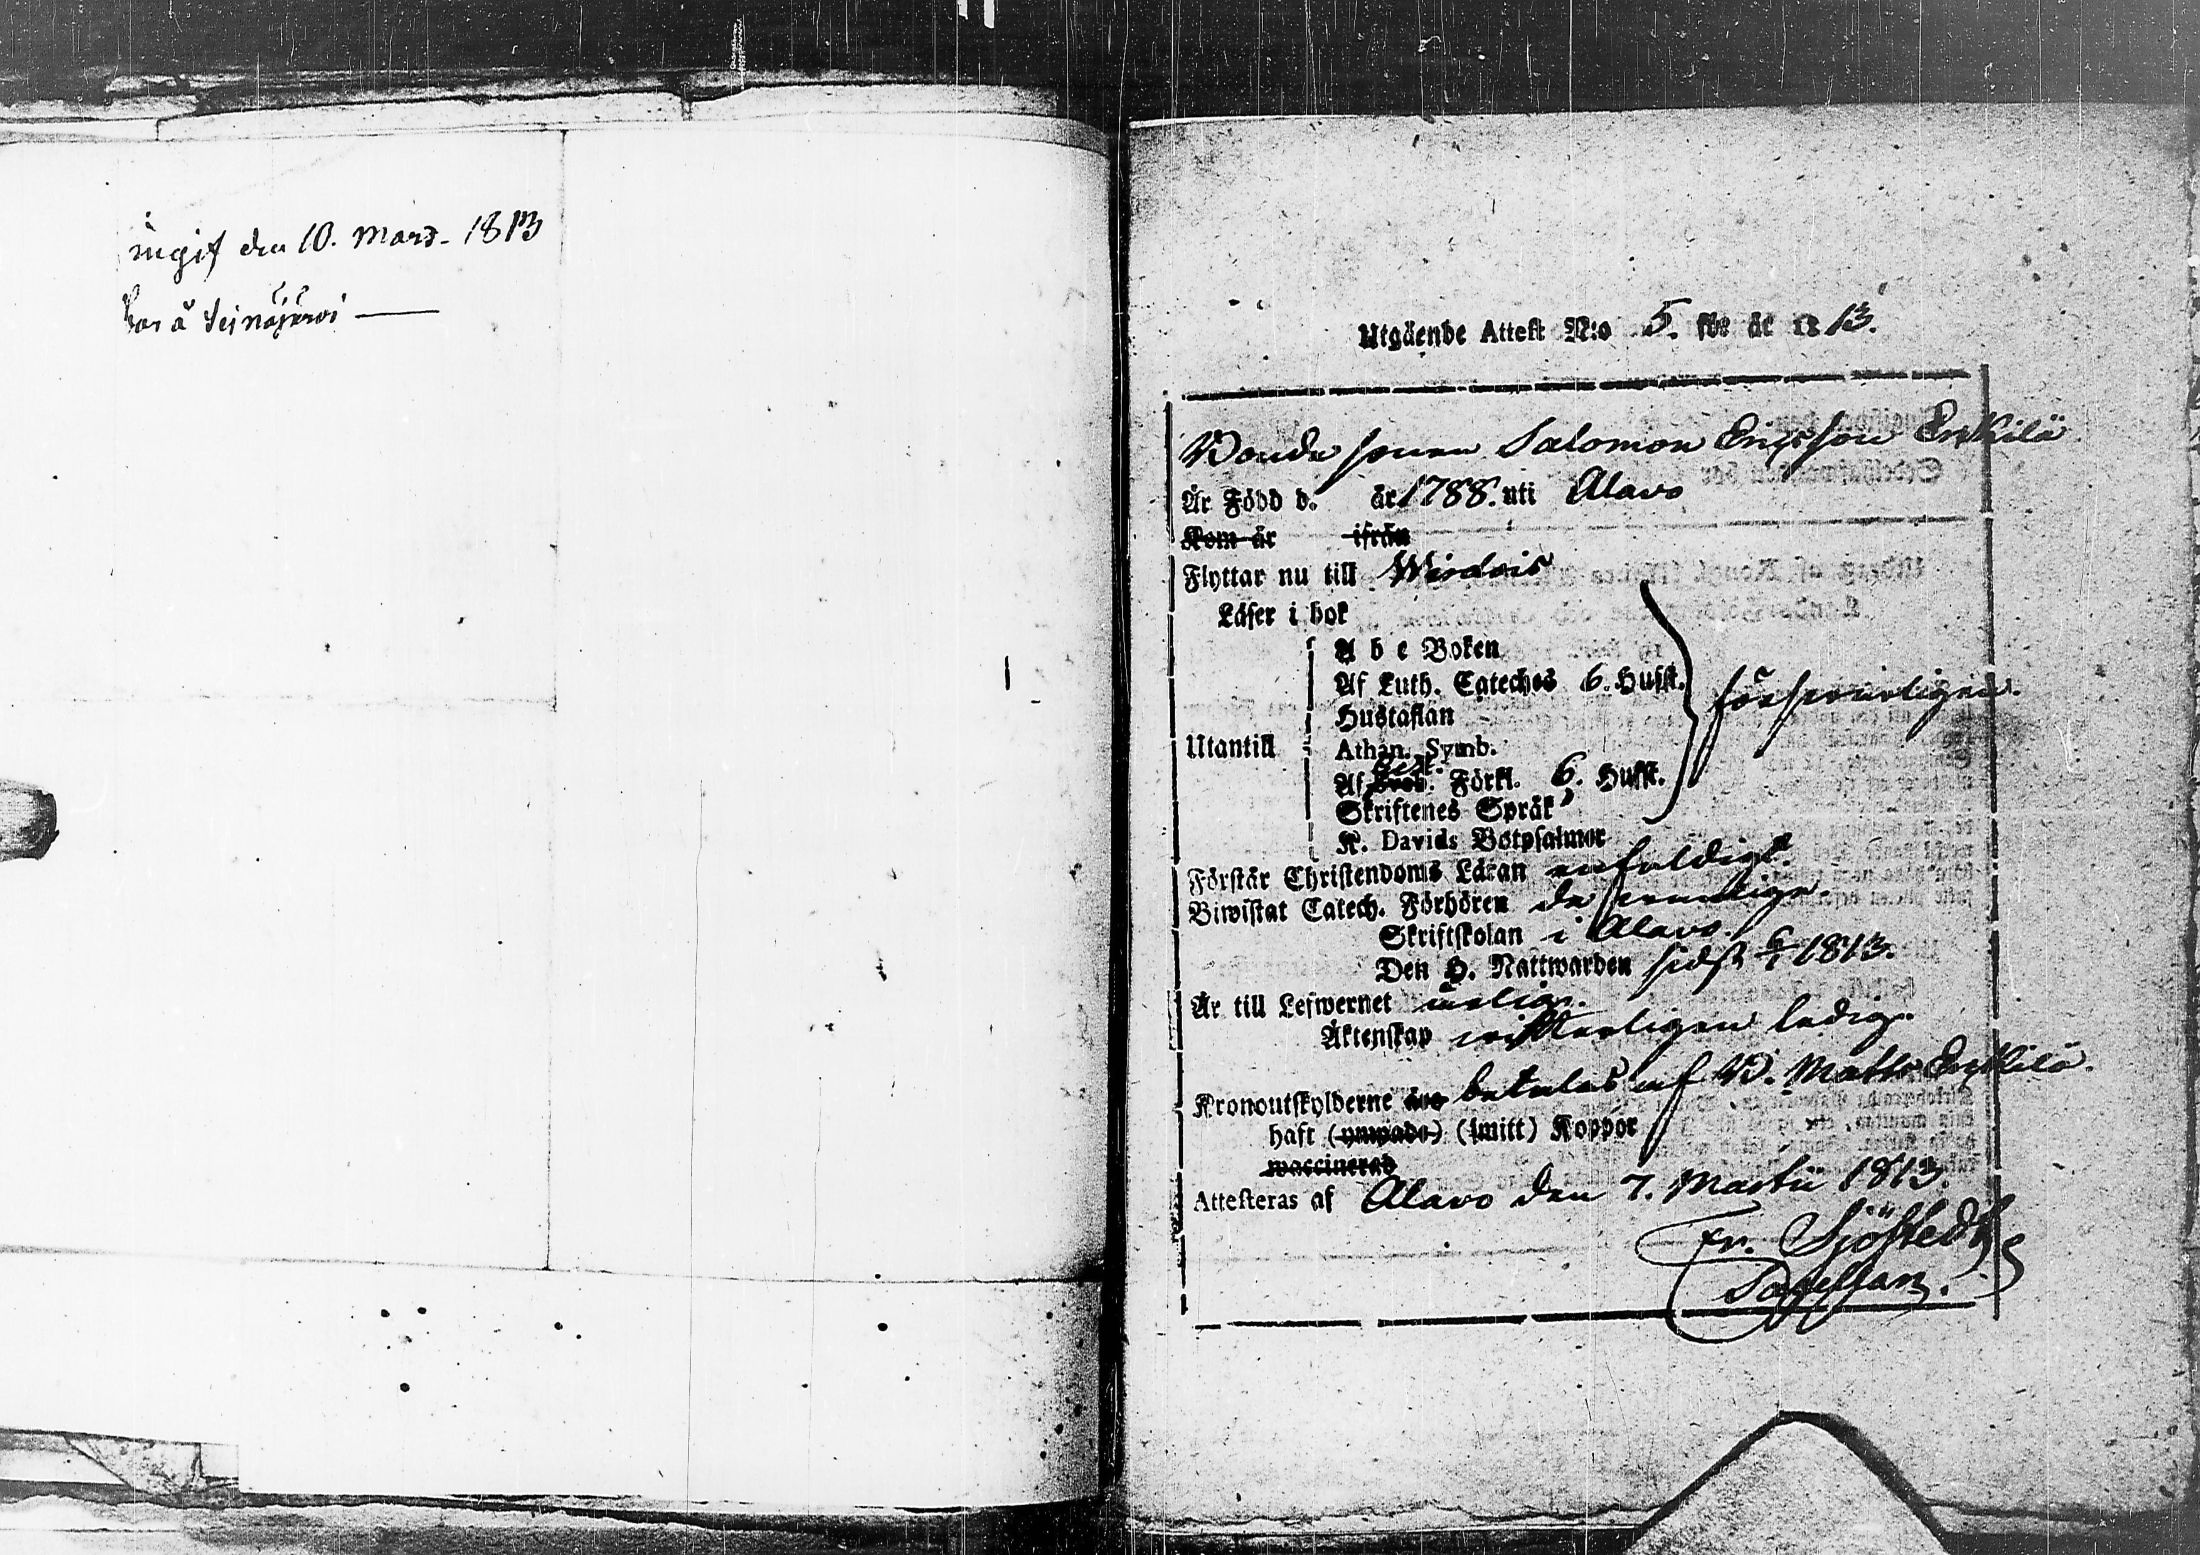 ingif den 10. Mars. 1813
bor å Seinäjervi —
Utgående Attest N:o 5. för år 1813.
Bonde sonen Salomon Ericsson Erkkilä
Är Född d. år 1788. uti Alavo
Kom år ifrån
Flyttar nu till Wirdois
Läser i bok
A b c Boken
Af Luth. Cateches 6. Husst.
Hustaflan
försvarligen.
Utantill
Athan. Symb.
Af Förkl. 6. Husst.
Skriftenes Språk
K. Davids Botpsalmer
Förstår Christendoms Läran enfaldigt.
Biwistat Catech. Förhören de
Skriftskolan i Alavo.
Den H. Nattwarden sidst 6/1 1813.
Är till Lefwernet ärlig.
Äktenskap witterligen ledig.
Kronoutskylderne äro betalas af B. Matts Erkkilä.
haft (ympade) (smitt) Koppor
waccinerad
Attesteras af Alavo den 7. Martii 1813.
Fr. Sjöstedt
Capellan.